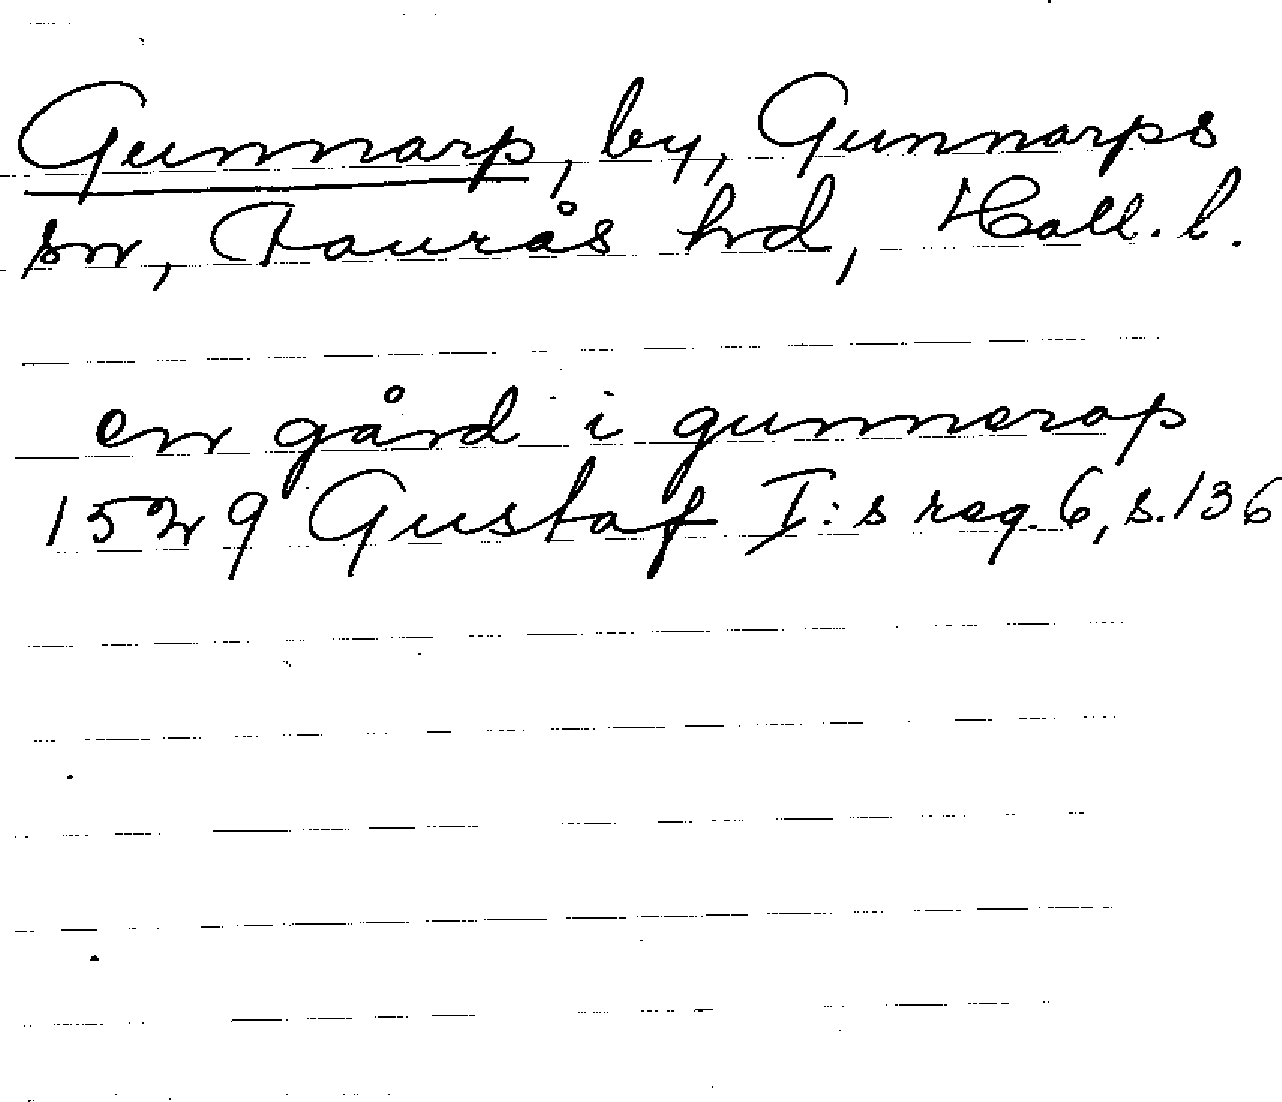 Gunnarp, by, Gunnarps
sn, Faurås hd, Hall. l.
en gård i gunnerap
1529 Gustaf I:s reg. 6, s. 136